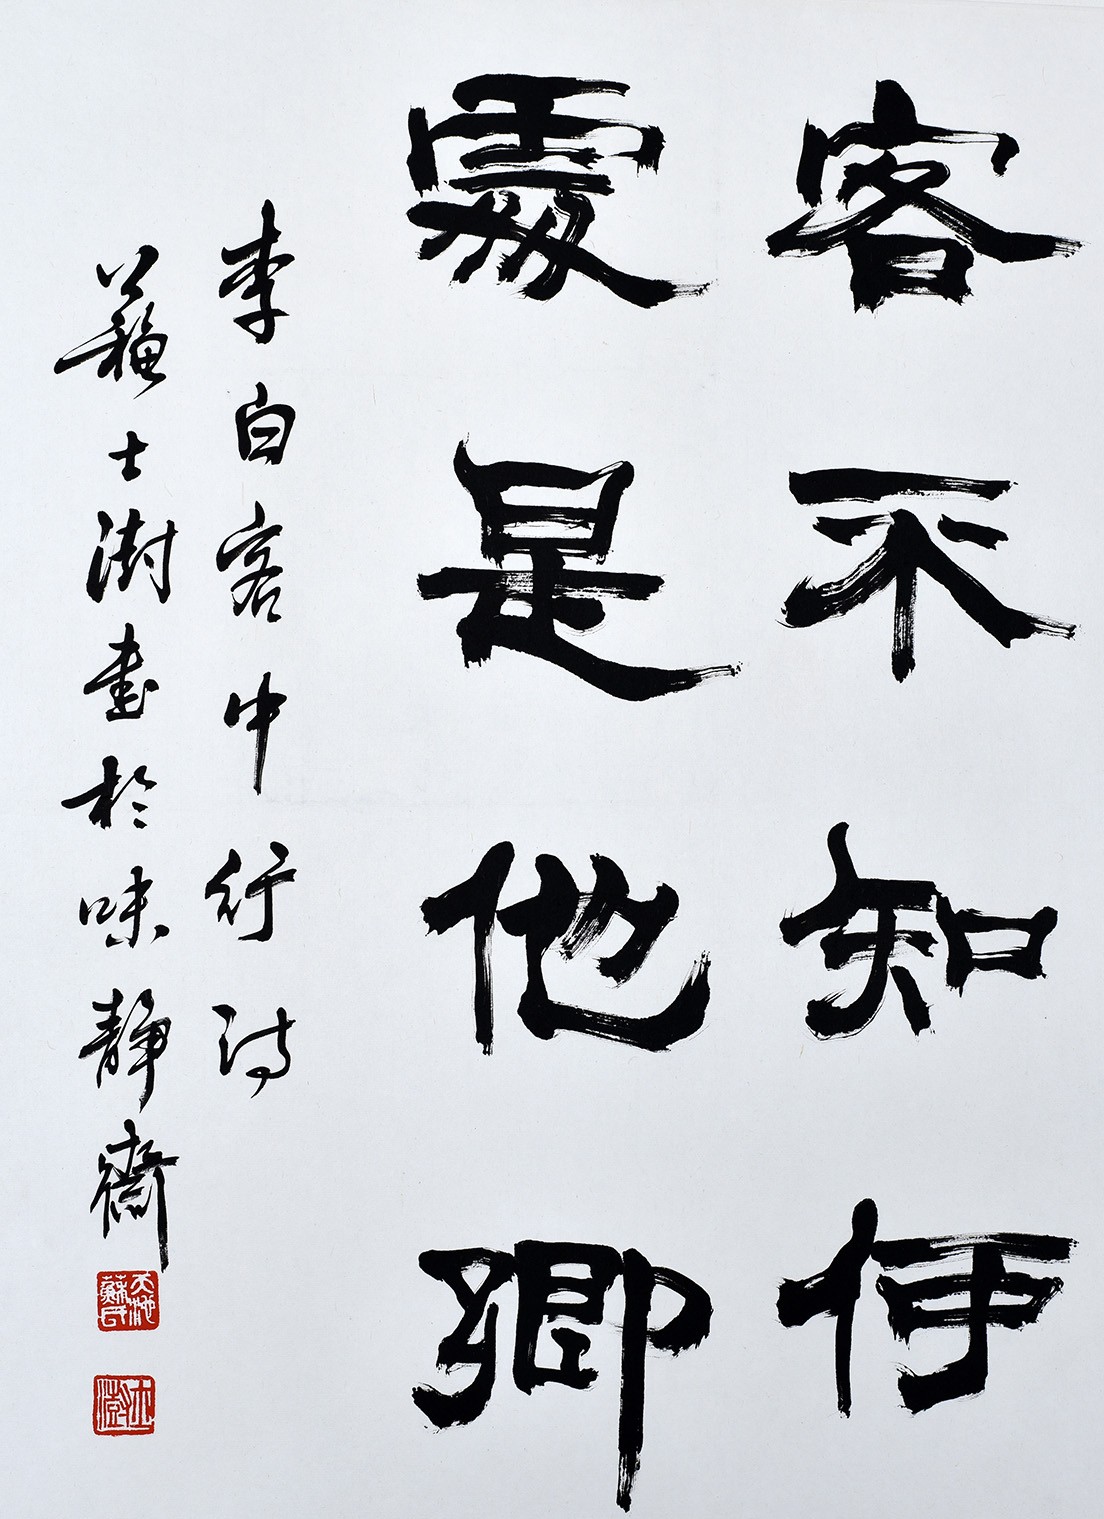 客不知何
處是他鄉
李白客中行詩
蘇士澍書於味靜齋
士澍